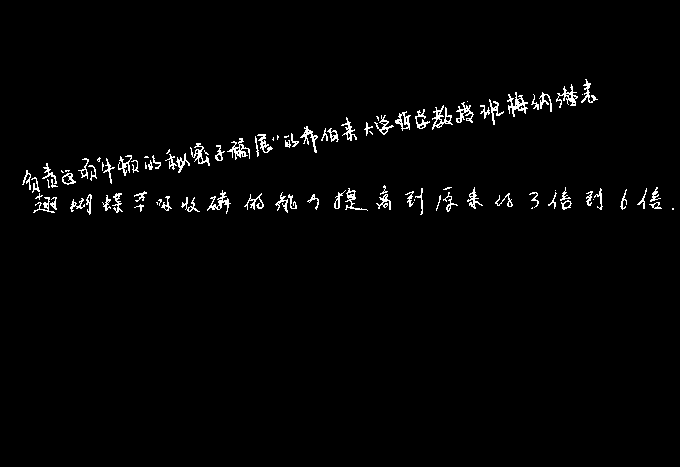 负责这项“牛顿的秘密手稿展”的希伯来大学哲学教授班梅纳潜表
翅蝴蝶草吸收磷的能力提高到原来的3倍到6倍.